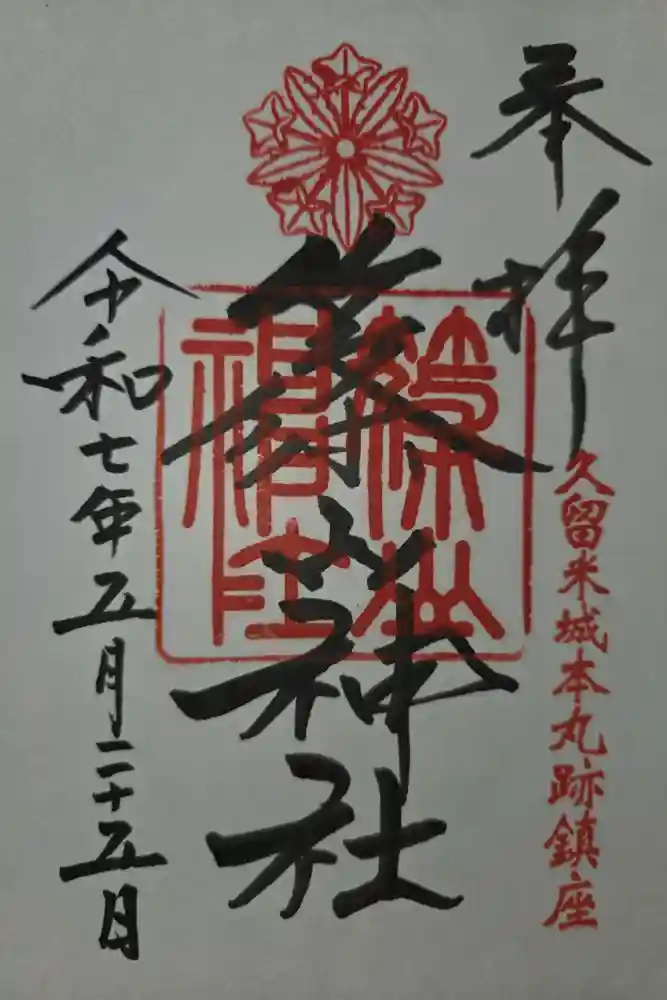 奉拝
久留米城本丸跡鎮座
篠山神社
令和七年五月二十五日